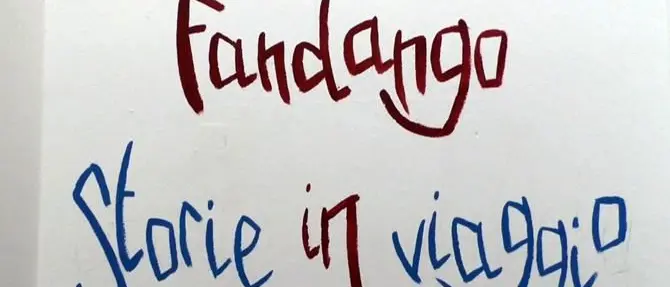 Fandango
Storie in viaggio